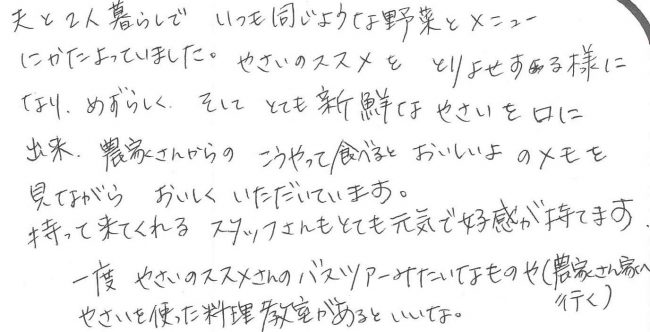 夫と2人暮らしで いつも同じような野菜とメニュー
にかたよっていました。 やさいのススメを とりよせする様に
なり、めずらしく、そして とても新鮮な やさいを口に
出来、農家さんからの こうやって食べるとおいしいよ のメモを
見てながら おいしくいただいています。
持って来てくれる スタッフさんもとても元気で好感が持てます。
一度 やさいのススメさんのバスツアーみたいなものや(農家さん家へ
行く)
やさいを使った料理教室があるといいな。